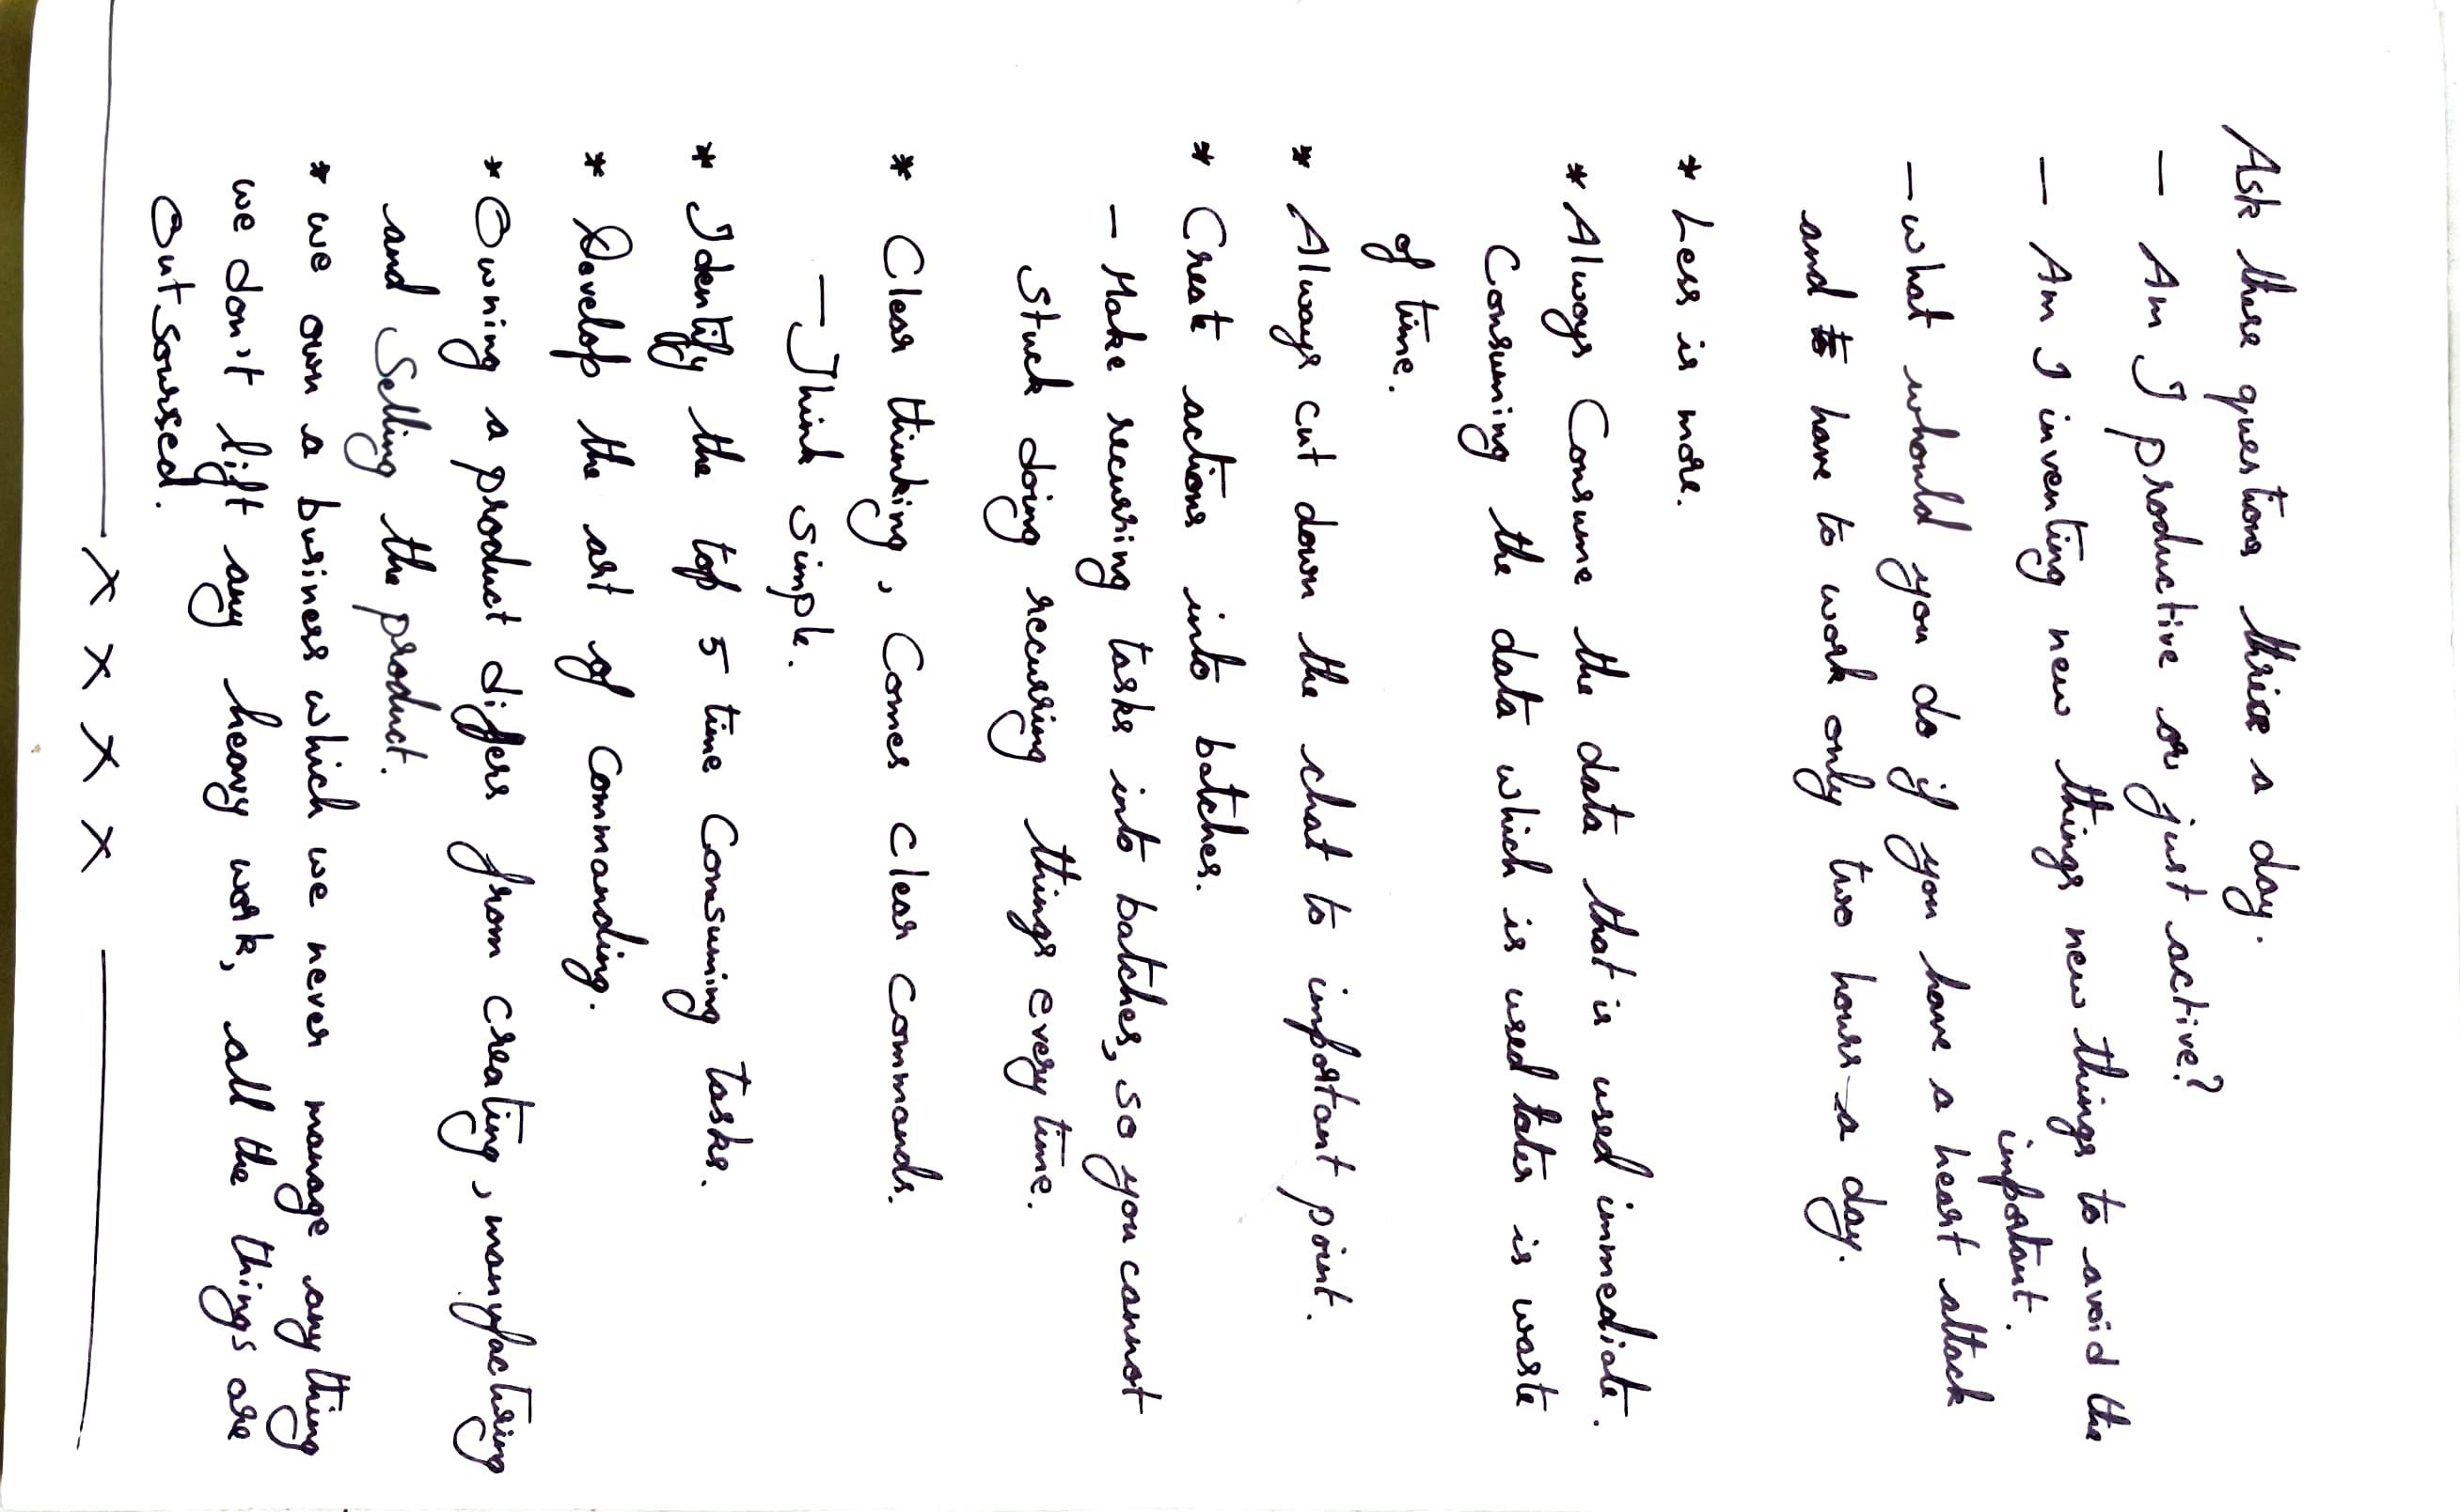 Ask these questions thrice a day.
— Am I productive or just active?
— Am I inventing new things new things to avoid the
important.
— what whould you do if you have a heart attack
and to have to work only two hours a day.
* Less is more.
* Always Consume the data that is used immediate.
Consuming the data which is used later is waste
of time.
* Always cut down the chat to important point.
* Create actions into batches.
— Make recurring tasks into batches, so you cannot
stuck doing recurring things every time.
* Clear thinking, Comes clear commands.
— Think simple.
* Identify the top 5 time Consuming tasks.
* Develop the art of commanding.
* Owning a product differs from creating, manufacturing
and Selling the product.
* we own a business which we never manage any thing
we don't lift any heavy work, all the things are
Outsoursed.
x x x x